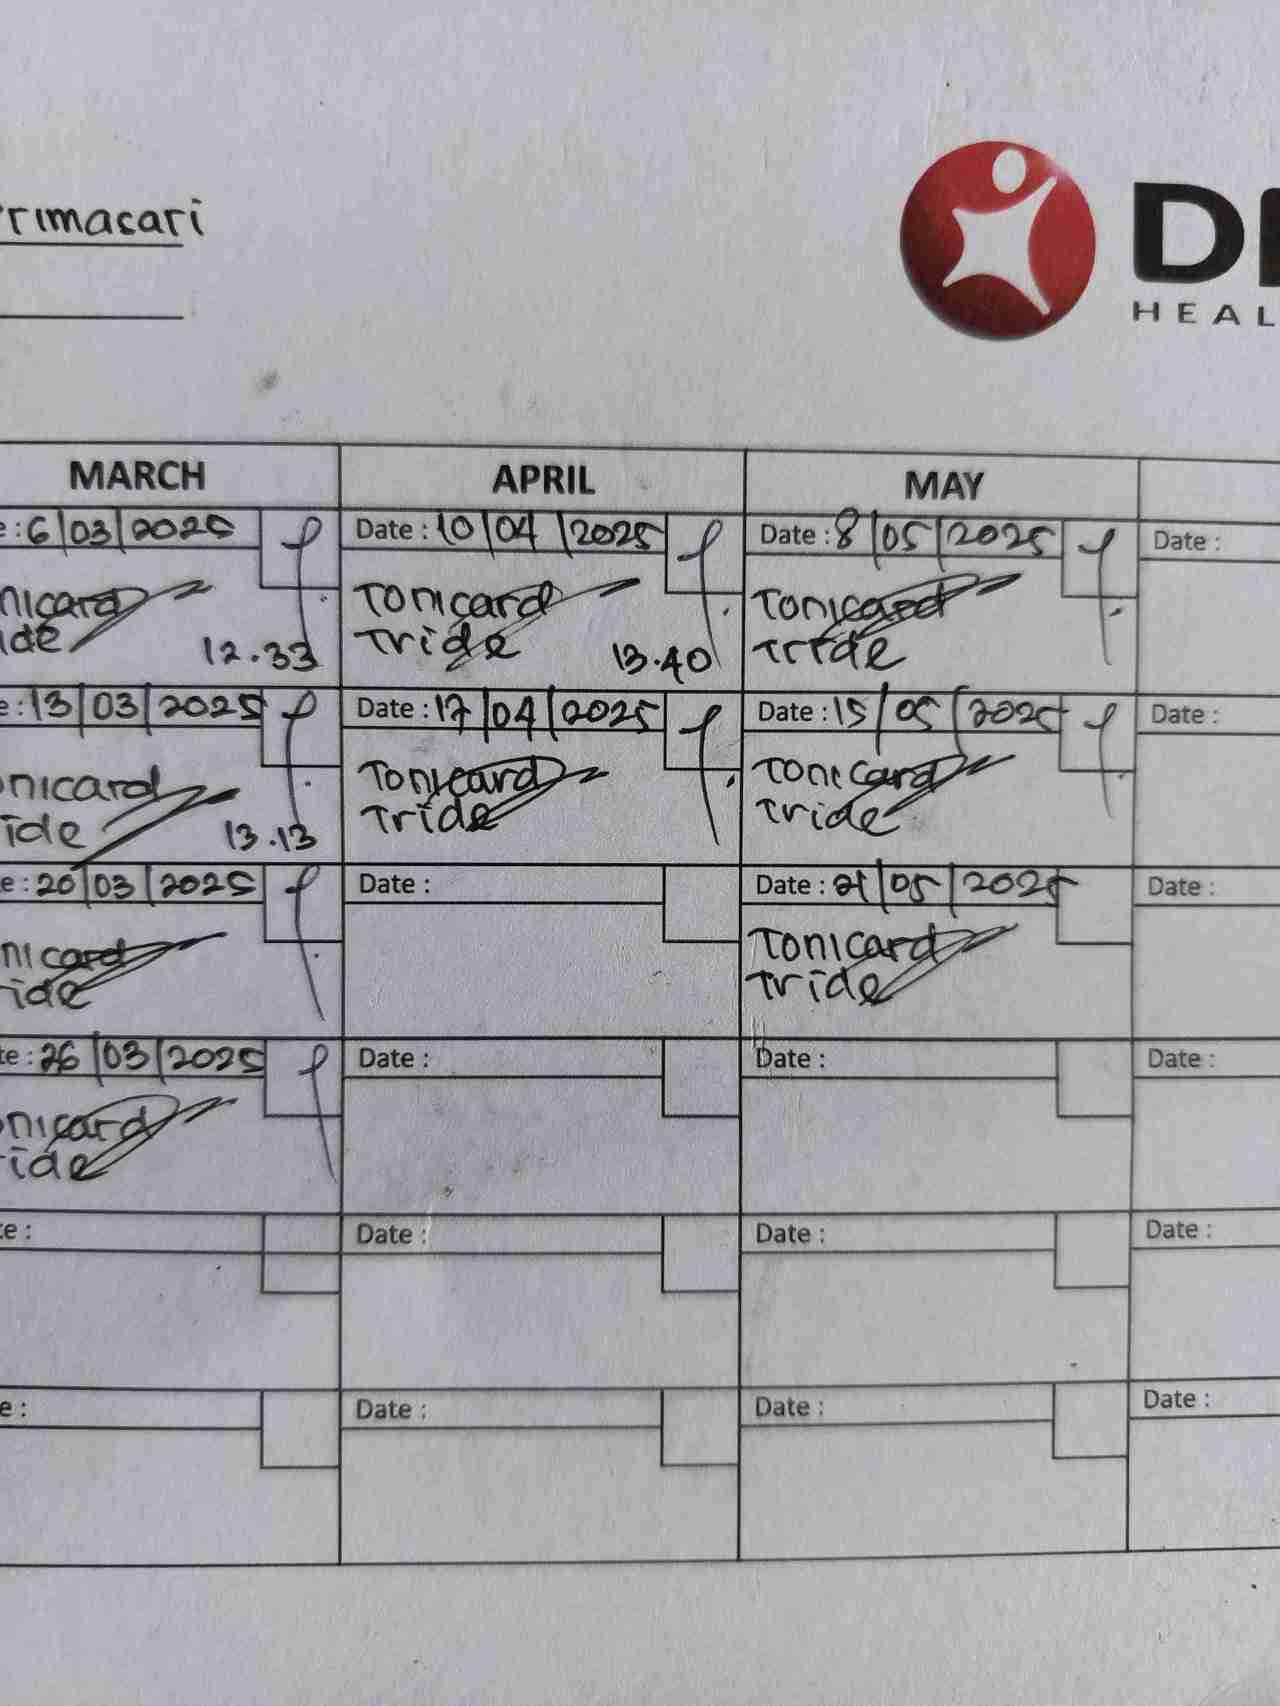 rimasari
D
HEAL
MARCH APRIL MAY
e : 6/03/2025 Date : 10/04/2025 Date : 8/05/2025 Date :
nicard Tonicard Tonicard
ide 12.33 Tride 13.40 Tride
e : 13/03/2025 Date : 17/04/2025 Date : 15/05/2025 Date :
onicard Tonicard Tonicard
ide 13.13 Tride Tride
e : 20/03/2025 Date : Date : 21/05/2025 Date :
nicard Tonicard
ide Tride
te : 26/03/2025 Date : Date : Date :
onicard
ride
te : Date : Date : Date :
e : Date : Date : Date :